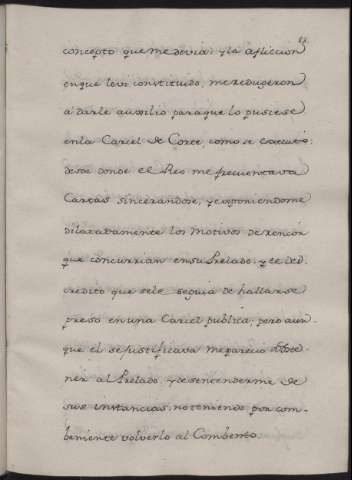 85.
concepto que me devia; y la afliccion
en que le vi constituido, me redugeron
á darle auxilio para que lo pusiese
en la Carcel de Corte, como se executó;
desde donde el Reo me frecuentava
Cartas sincerandose, y exponiendome
dilatadamente los motivos de rencor
que concurrian en su Prelado; y el des-
credito que se le seguia de hallarse
preso en una Carcel publica; pero aun-
que el se justificava me pareció
ner al Prelado, y desentenderme de
sus instancias, no teniendo por com-
beniente volverlo al Combento.